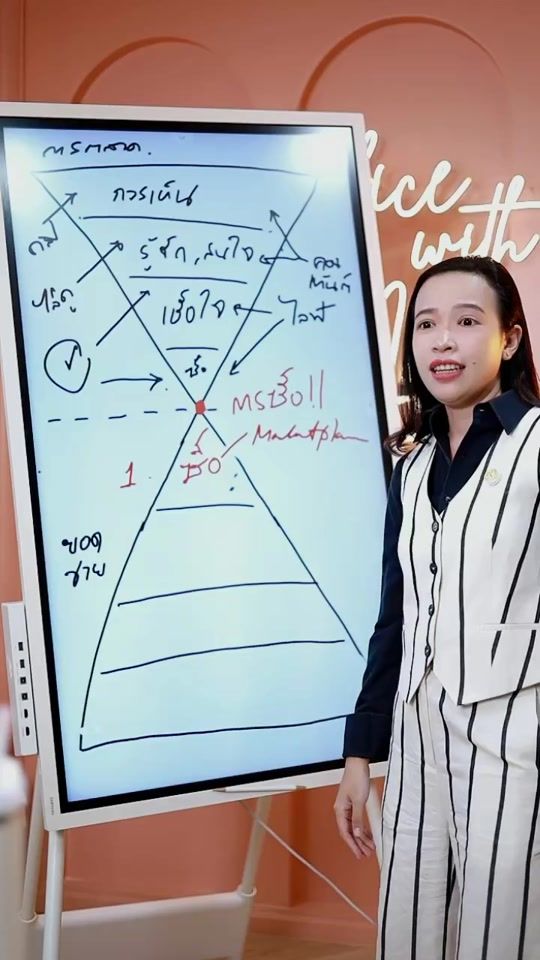 การตลาด.
การเห็น
รู้จัก, สนใจ
คอนเทนต์
เชื่อใจ
ไลฟ์
ซื้อ
การซื้อ!!
1.
ซื้อ
ยอด
ขาย
with